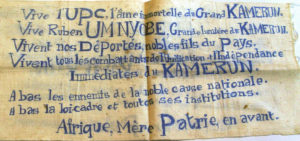 Vive l'UPC, l'âme immortelle du Grand KAMERUN.
Vive Ruben UM NYOBE, Grand lumière du KAMERUN.
Vivent nos Déportés, nobles fils du Pays.
Vivent tous les combattants de l'Unification et l'Indépendance
Immédiates du KAMERUN.
A bas les ennemis de la noble cause nationale.
A bas la loi cadre et toutes ses institutions.
Afrique, Mère Patrie, en avant.